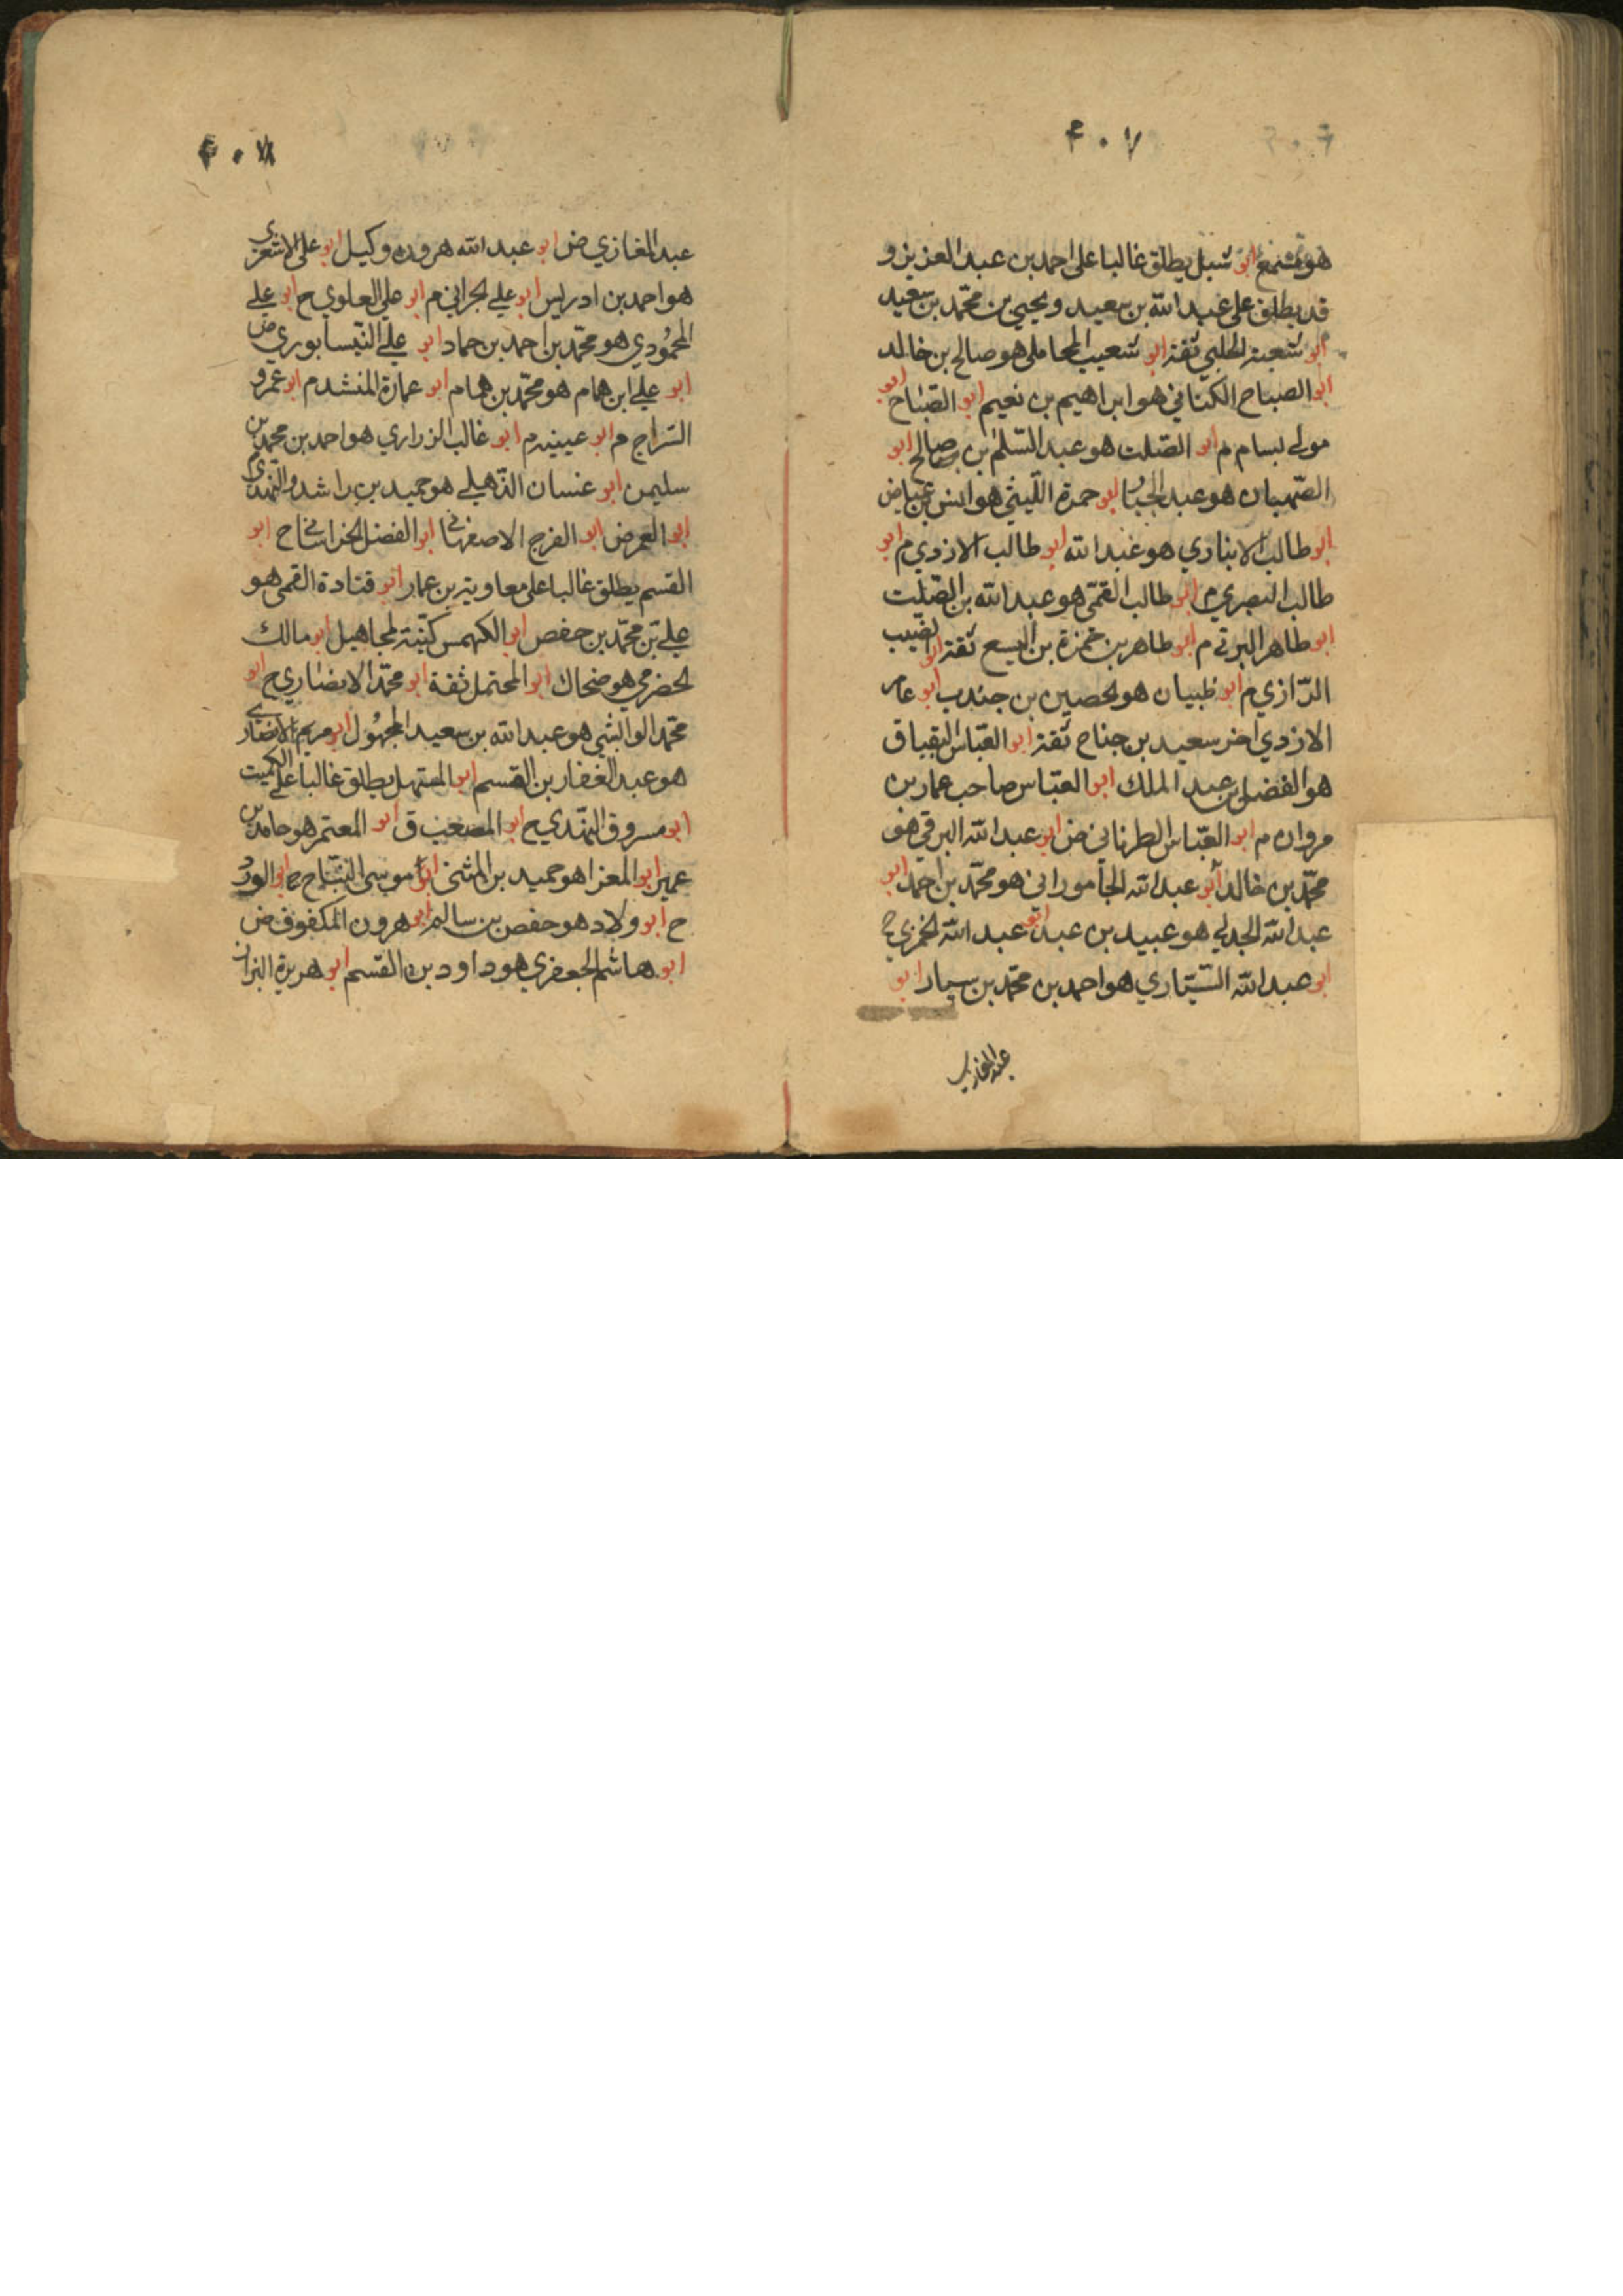 ٤٠٧
هو مسمع ابو شبل يطلق غالبا على احمد بن عبد العزيز و
قد يطلق على عبد الله بن سعيد و يحيى بن محمّد بن سعيد
ابو شعبة الحلبي ثقة ابو شعيب المحاملي هو صالح بن خالد
ابو الصباح الكناني هو ابراهيم بن نعيم ابو الصّباح
مولى بسام م ابو الصّلت هو عبد السّلم بن صالح ابو
الصّهبان هو عبد الجبار ابو حمزة اللّيثي هو انس بن عياض
ابو طالب الانباري هو عبد الله ابو طالب الازدي م ابو
طالب البصري م ابو طالب القمّي هو عبد الله بن الصّلت
ابو طاهر البرقي م ابو طاهر بن حمزة بن اليسع ثقة ابو
الرّازي م ابو ظبيان هو الحصين بن جندب ابو عامر
الازدي اخر سعيد بن جناح ثقة ابو العبّاس البقباق
هو الفضل بن عبد الملك ابو العبّاس صاحب عمار بن
مروان م ابو العبّاس الطرناني ض ابو عبد الله البرقي هو
محمّد بن خالد ابو عبد الله الجاموراني هو محمّد بن احمد ابو
عبد الله الجدلي هو عبيد بن عبد ابو عبد الله
ابو عبد الله السّيّاري هو احمد بن محمّد بن سيار ابو
عبد المغازي
٤٠٨
عبد المغازي ض ابو عبد الله هرون وكيل ابو على الاشعري
هو احمد بن ادريس ابو علي الحراني م ابو علي العلوي ح ابو علي
المحمُودي هو محمّد بن احمد بن حماد ابو علي النّيسابوري ض
ابو علي ابن همام هو محمّد بن همام ابو عمارة المنشد م ابو عمرو
السّراج م ابو عيينه م ابو غالب الزراري هو احمد بن محمد بن
سليمن ابو غسان الذّهلي هو حميد بن راشد و النهدي
ابو العمر ض ابو الفرج الاصفهاني ابو الفضل الخراساني ح ابو
القسم يطلق غالبا على معاوية بن عمار ابو قتادة القمي هو
علي بن محمّد بن حفص ابو الكهمس كنية لمجاهيل ابو مالك
الحضرمي هو ضحاك ابو المحتمل ثقة ابو محمّد الانصاري ح ابو
محمّد الوابشي هو عبد الله بن سعيد المجهُول ابو مريم الانصاري
هو عبد الغفار بن القسم ابو المستهل يطلق غالبا على الكميت
ابو مسروق النهدي ح ابو المصعب ق ابو المعتمر هو حامد بن
عمير ابو المغرا هو حميد بن المثنى ابو موسى البنّاح ابو الورد
ح ابو ولاد هو حفص بن سالم ابو هرون المكفوف ض
ابو هاشم الجعفري هو داود بن القسم ابو هريرة البزاز